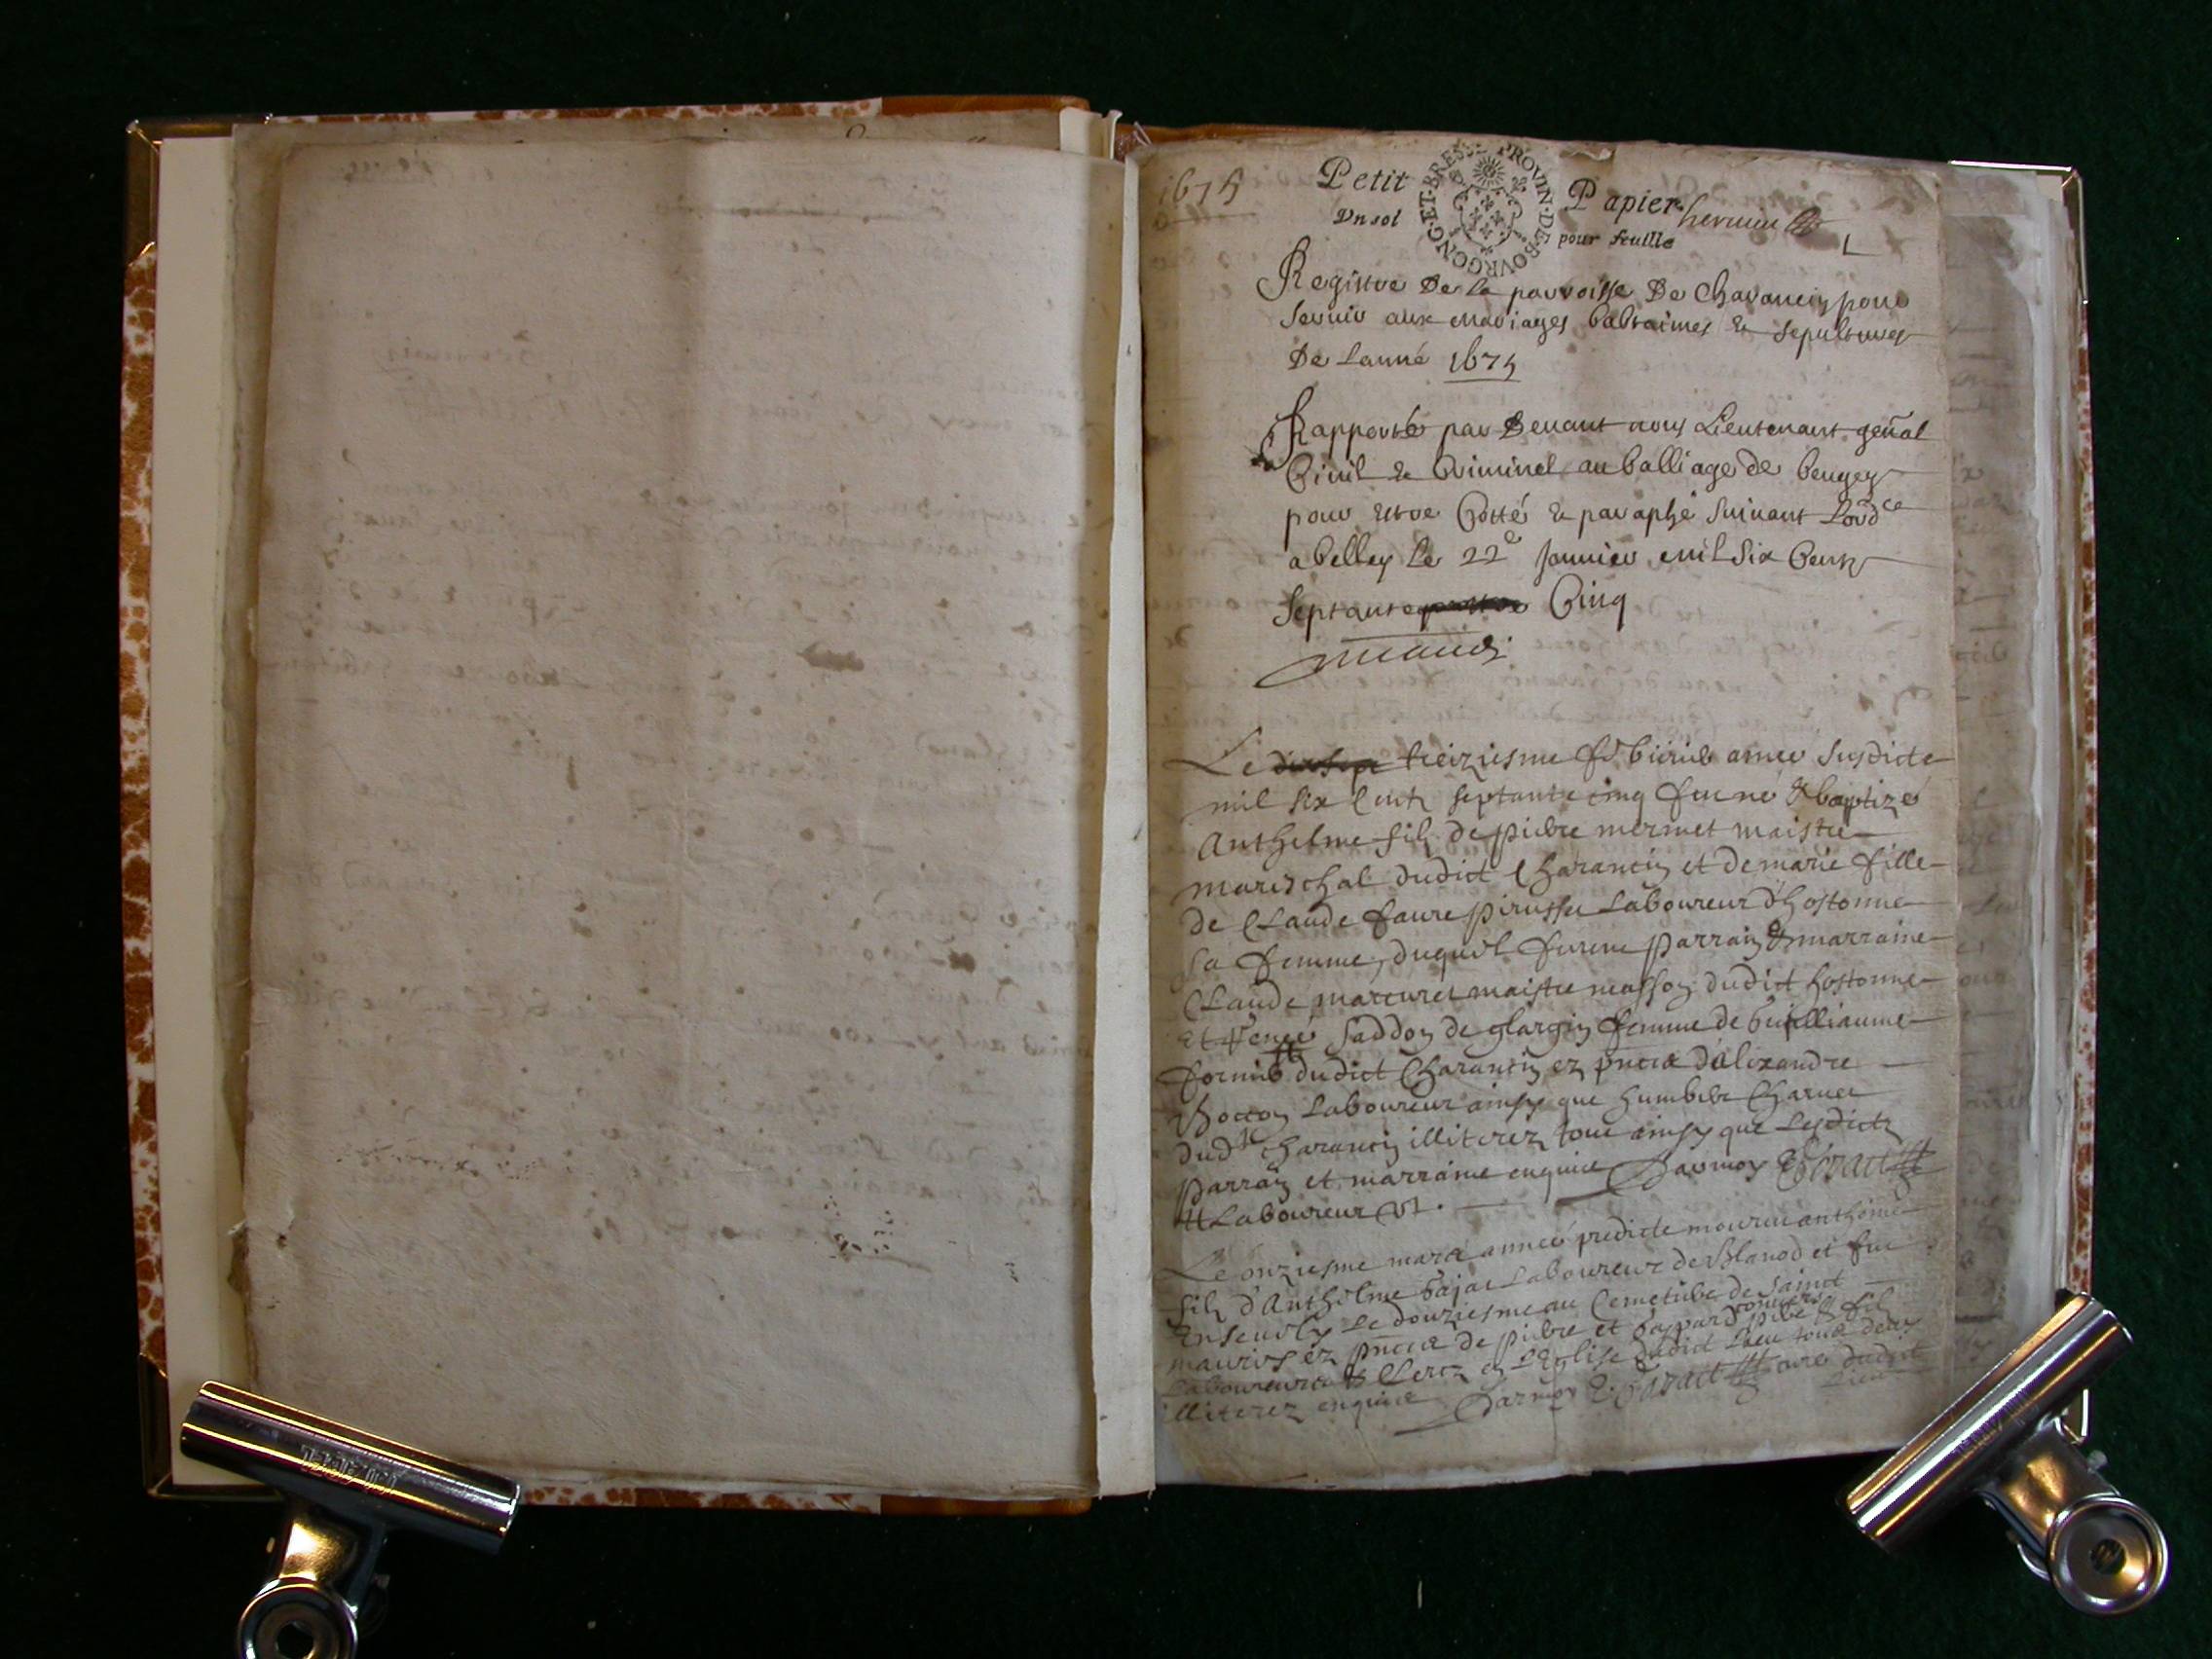 1675
Petit Papier
Un sol pour feuille
BOVRGONG·ET·BRESSE PROVIN·DE·
Registre De la parroisse De Charancin pour
servir aux mariages babtaimes & sepultures
De Lanné 1675
Rapporté par Devant nous Lieutenant gen̄al
Civil & Criminel au balliage de beugey
pour estre Cotté & paraphé suivant Lordce
a belley Le 22e Janvier mil six Cents
septante quattre Cinq
Le dixsept treiziesme febvrier année susdicte
mil six Cents septante cinq fut né & baptizé
Anthelme filz de pierre mermet maistre
mareschal dudict Charancin et de marie fille
de Claude faure laboureur d'hostonne
sa femme, duquel furent parrain & marraine
Claude maistre masson dudict hostonne
Et de femme de Guilliaume
dudict Charancin ez pn̄ce d'alixandre
Laboureur ainsy que humbert Charvet
dudt Charancin illiterez tous ainsy que Lesdictz
parrain et marraine enquis
Laboureur
Le onziesme mars année predicte mourut anthoine
filz d'Anthelme Laboureur de et fut
Ensevely Le douziesme au Cemetiere de Sainct
mauris ez pn̄ce de pierre et gaspard filz
Laboureur Clerc en L'Eglise dudict Lieu tous deux
illiterez enquis curé dudict
Lieu